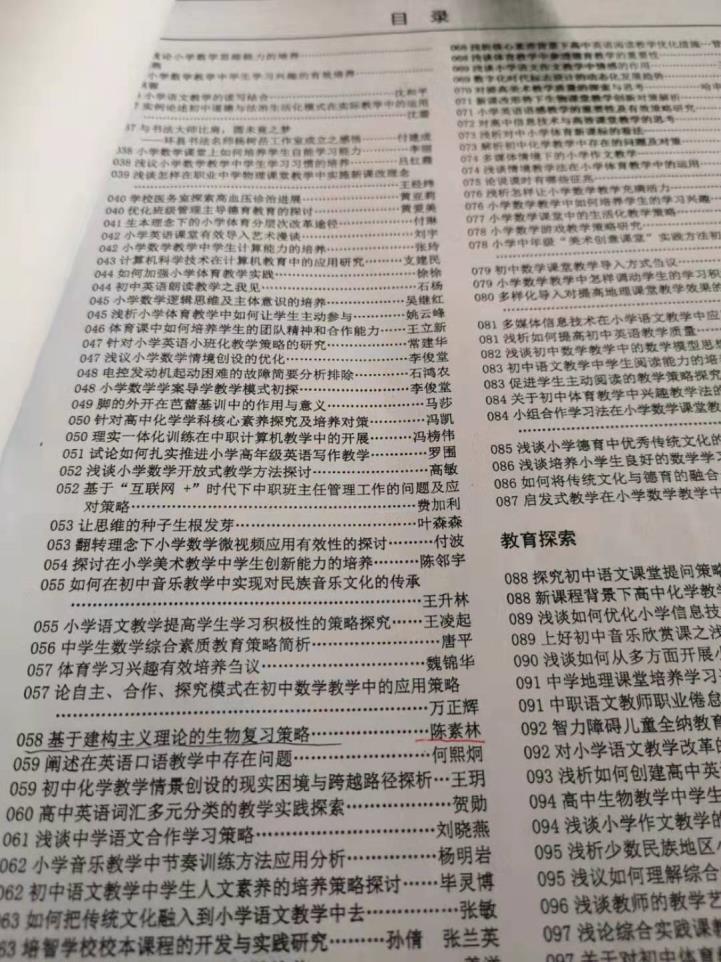 目 录
浅论小学数学思维能力的培养
小学数学教学中学生学习兴趣的有效培养
小学语文教学的读写结合……沈和平
实例论述初中道德与法治生活化模式在实际教学中的运用
37 与书法大师比肩，圆未竟之梦
——环县书法名师杨树岳工作室成立之感悟……付建成
038 小学数学课堂上如何培养学生自主学习能力……李丽
038 浅议小学数学教学中学生学习习惯的培养……吕红霞
039 浅谈怎样在职业中学物理课堂教学中实施新课改理念
……王经纬
040 学校医务室探索高血压诊治进展……黄亚莉
040 优化班级管理主导德育教育的探讨……黄爱美
041 生本理念下的小学体育分层次改革途径……付琳
042 小学英语课堂有效导入艺术漫谈……刘宇
042 小学数学教学中学生计算能力的培养……张玲
043 计算机科学技术在计算机教育中的应用研究……支建民
044 如何加强小学体育教学实践……徐徐
044 初中英语朗读教学之我见……石杨
045 小学数学逻辑思维及主体意识的培养……吴继红
045 浅析小学体育教学中如何让学生主动参与……姚云峰
046 体育课中如何培养学生的团队精神和合作能力……王立新
047 针对小学英语小班化教学策略的研究……常建华
047 浅议小学数学情境创设的优化……李俊堂
048 电控发动机起动困难的故障简要分析排除……石鸿农
048 小学数学学案导学教学模式初探……李俊堂
049 脚的外开在芭蕾基训中的作用与意义……马莎
050 针对高中化学学科核心素养探究及培养对策……冯凯
050 理实一体化训练在中职计算机教学中的开展……冯榜伟
051 试论如何扎实推进小学高年级英语写作教学……罗围
052 浅谈小学数学开放式教学方法探讨……高敏
052 基于“互联网 +”时代下中职班主任管理工作的问题及应
对策略……费加利
053 让思维的种子生根发芽……叶森森
053 翻转理念下小学数学微视频应用有效性的探讨……付波
054 探讨在小学美术教学中学生创新能力的培养……陈邻宇
055 如何在初中音乐教学中实现对民族音乐文化的传承
……王升林
055 小学语文教学提高学生学习积极性的策略探究……王凌起
056 中学生数学综合素质教育策略简析……唐平
057 体育学习兴趣有效培养刍议……魏锦华
057 论自主、合作、探究模式在初中数学教学中的应用策略
……万正辉
058 基于建构主义理论的生物复习策略……陈素林
059 阐述在英语口语教学中存在问题……何熙炯
059 初中化学教学情景创设的现实困境与跨越路径探析…王玥
060 高中英语词汇多元分类的教学实践探索……贺勋
061 浅谈中学语文合作学习策略……刘晓燕
062 小学音乐教学中节奏训练方法应用分析……杨明岩
062 初中语文教学中学生人文素养的培养策略探讨……毕灵博
063 如何把传统文化融入到小学语文教学中去……张敏
063 培智学校校本课程的开发与实践研究……孙倩 张兰英
068 浅析核心素养背景下高中英语阅读教学优化措施…
069 浅谈小学语文作文教学中情感的作用
069 数字化时代标志设计的动态化发展趋势
072 对高中信息技术与高等课堂教学的思考
073 浅析对中小学体育新课标的看法
073 解析初中化学教学中存在的问题及对策
074 多媒体情境下的小学作文教学
074 浅谈情境教学法在小学体育教学中的运用
075 论说课时有哪些征兆
076 浅析怎样让小学数学教学充满活力
076 小学数学教学中如何培养学生的学习兴趣
077 小学数学课堂中的生活化教学策略
078 小学数学游戏教学策略研究
078 小学中年级“美术创意课堂”实践方法初
079 初中数学课堂教学导入方式刍议
079 小学数学教学中怎样调动学生的学习积
080 多样化导入对提高地理课堂教学效果的
081 多媒体信息技术在小学语文教学中应
081 浅析如何提高初中英语教学质量
082 浅谈初中数学教学中的数学模型思想
083 初中语文教学中学生阅读能力的培
083 促进学生主动阅读的教学策略探究
084 关于初中体育教学中兴趣教学法的
084 小组合作学习法在小学数学课堂教
085 浅谈小学德育中优秀传统文化的
086 浅谈培养小学生良好的数学学习
086 如何将传统文化与德育的融合
087 启发式教学在小学数学教学中
教育探索
088 探究初中语文课堂提问策略
088 新课程背景下高中化学教学
089 浅谈如何优化小学信息技
089 上好初中音乐欣赏课之浅
090 浅谈如何从多方面开展小
091 中学地理课堂培养学习
091 中职语文教师职业倦怠
092 智力障碍儿童全纳教育
092 对小学语文教学改革的
093 浅析如何创建高中英
094 高中生物教学中学生
094 浅谈小学作文教学的
095 浅析少数民族地区小
095 浅议如何理解综合
096 浅谈教师的教学艺
097 浅论综合实践课教
097 关于对初中体育